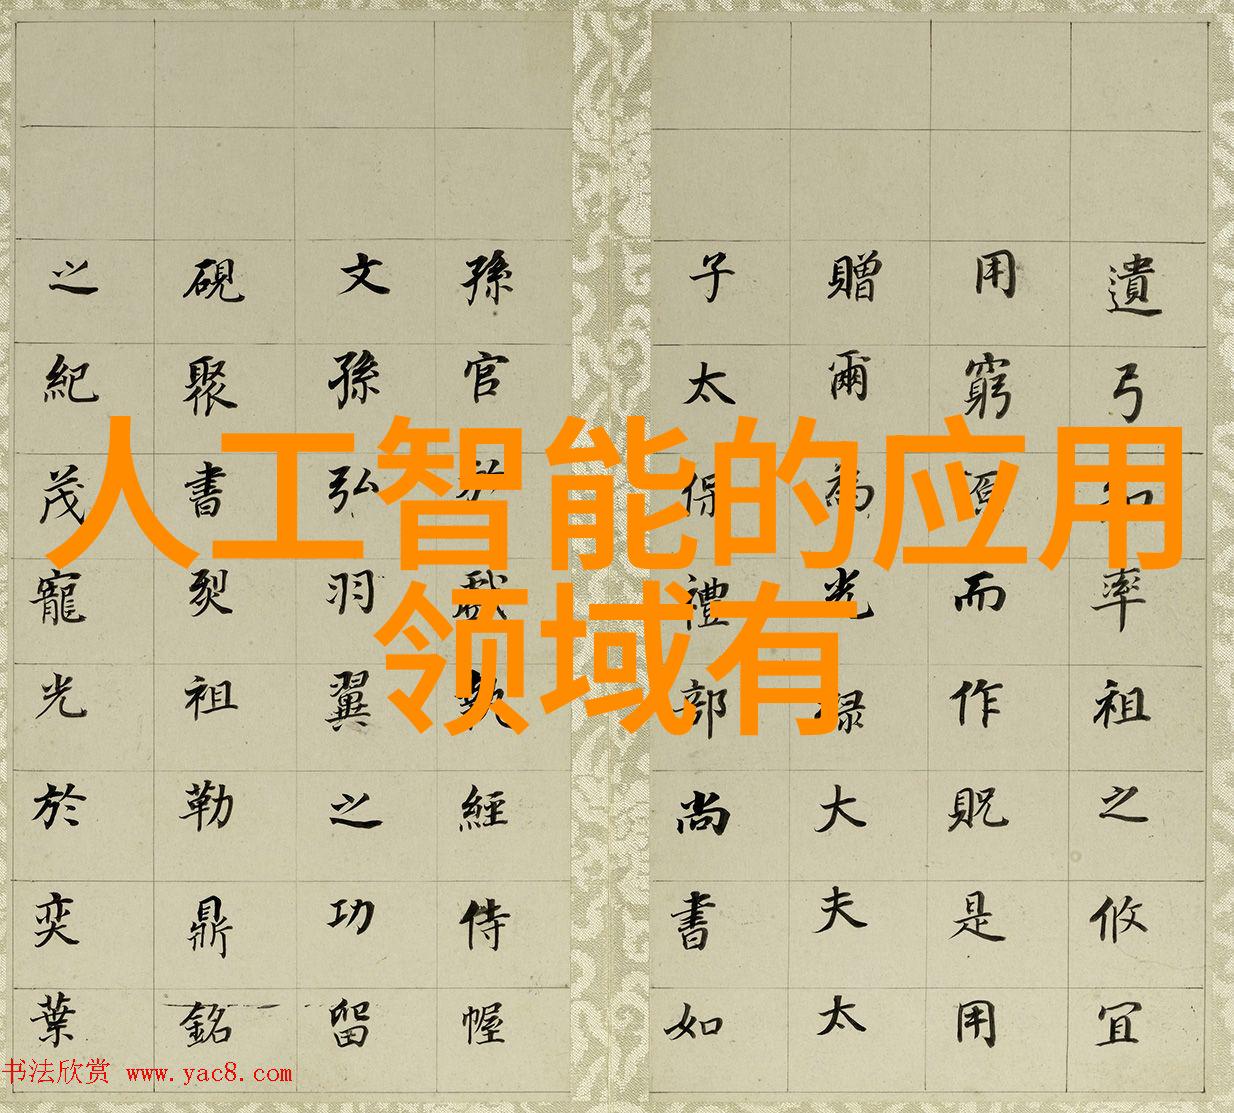 人工智能的应用
领域有
遺弓率祖之攸宜
用窮而作貺是用
贈爾為光祿大夫太
子太保禮部尚書如
孫官執經侍幄
文孫弘羽翼之功留
硯聚書裂祖勒鼎銘
之紀茂寵光於奕葉
书法欣赏 www.yac8.com